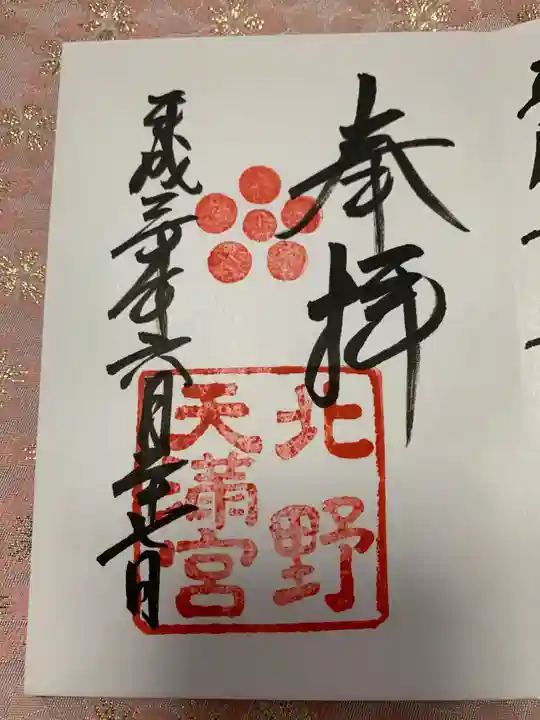 奉拝
北野
天満宮
平成三十年六月二十七日